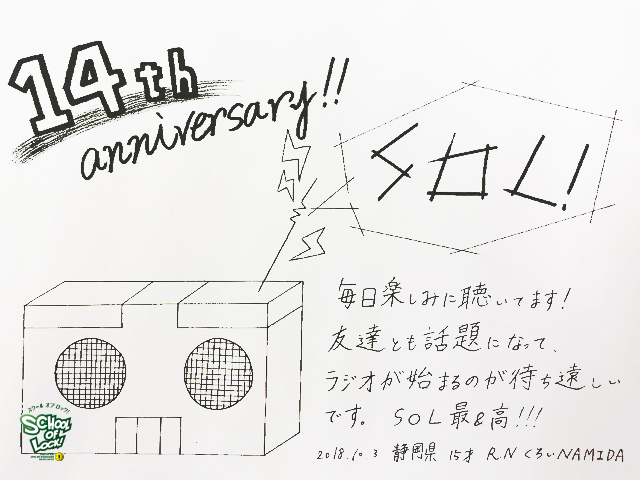 14th
anniversary!!
SOL!
毎日楽しみに聴いてます!
友達とも話題になって、
ラジオが始まるのが待ち遠しい
です。 SOL最&高!!!
2018.10.3 静岡県 15才 R.N くろいNAMIDA
スクール オブ ロック!
SCHOOL
OF
LOCK!